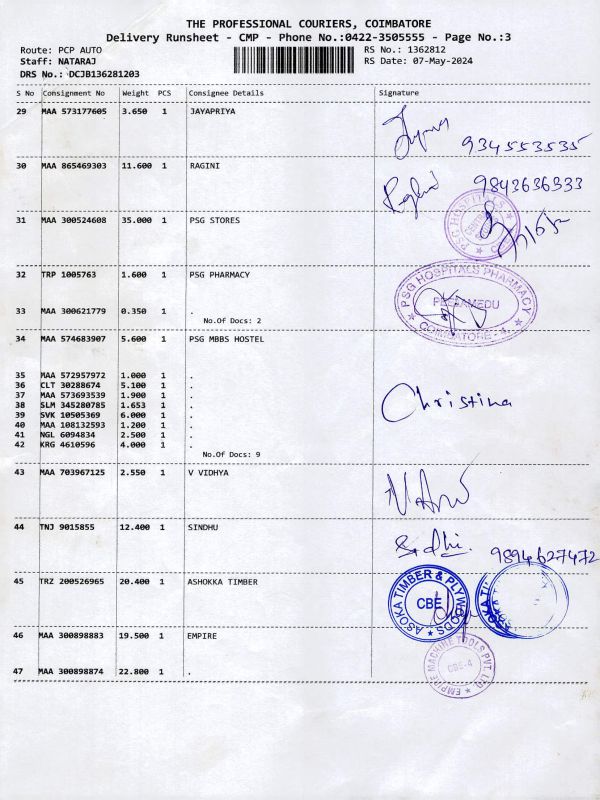 THE PROFESSIONAL COURIERS, COIMBATORE
Delivery Runsheet - CMP - Phone No.:0422-3505555 - Page No.:3
Route: PCP AUTO RS No.: 1362812
Staff: NATARAJ RS Date: 07-May-2024
DRS No.: DCJB136281203
S No Consignment No Weight PCS Consignee Details Signature
29 MAA 573177605 3.650 1 JAYAPRIYA
934553535
30 MAA 865469303 11.600 1 RAGINI
9843636333
31 MAA 300524608 35.000 1 PSG STORES
PSG HOSPITALS
32 TRP 1005763 1.600 1 PSG PHARMACY
PSG HOSPITALS PHARMACY
PEELAMEDU
COIMBATORE - 4.
33 MAA 300621779 0.350 1 .
No.Of Docs: 2
34 MAA 574683907 5.600 1 PSG MBBS HOSTEL
35 MAA 572957972 1.000 1 .
36 CLT 30288674 5.100 1 .
37 MAA 573693539 1.900 1 .
38 SLM 345280785 1.653 1 .
39 SVK 10505369 6.000 1 .
40 MAA 108132593 1.200 1 .
41 NGL 6094834 2.500 1 .
42 KRG 4610596 4.000 1 .
Christina
No.Of Docs: 9
43 MAA 703967125 2.550 1 V VIDHYA
44 TNJ 9015855 12.400 1 SINDHU
9894627472
45 TRZ 200526965 20.400 1 ASHOKKA TIMBER
ASOKA TIMBER & PLYWOODS
CBE
ASOKA TI
46 MAA 300898883 19.500 1 EMPIRE
EMPIRE MACHINE TOOLS PVT. LTD
CBE-4
47 MAA 300898874 22.800 1 .